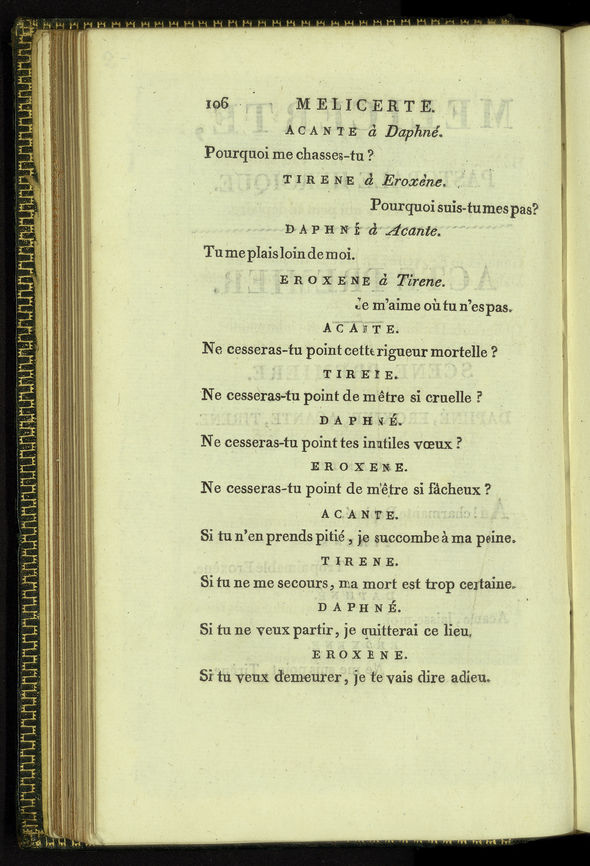 106 MELICERTE.
ACANTE à Daphné.
Pourquoi me chasses-tu ?
TIRENE à Eroxène.
Pourquoi suis-tu mes pas?
DAPHNÉ à Acante.
Tu me plais loin de moi.
EROXENE à Tirene.
Je m'aime où tu n'es pas.
ACANTE.
Ne cesseras-tu point cette rigueur mortelle ?
TIRENE.
Ne cesseras-tu point de m'être si cruelle ?
DAPHNÉ.
Ne cesseras-tu point tes inutiles vœux ?
EROXENE.
Ne cesseras-tu point de m'être si fâcheux ?
ACANTE.
Si tu n'en prends pitié, je succombe à ma peine.
TIRENE.
Si tu ne me secours, ma mort est trop certaine.
DAPHNÉ.
Si tu ne veux partir, je quitterai ce lieu.
EROXENE.
Si tu veux demeurer, je te vais dire adieu.